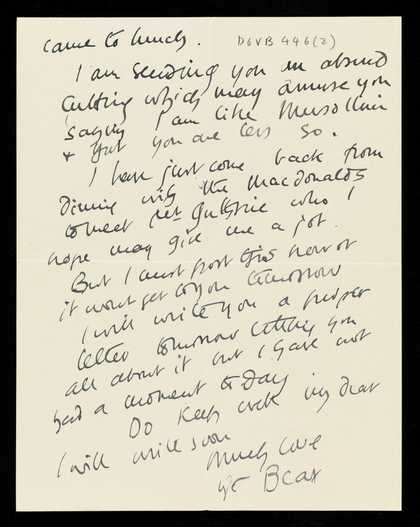 came to lunch. DGVB 446(2)
I am sending you an absurd
Cutting which may amuse you
saying I am like Mussolini
+ that you are less so.
I have just come back from
dining with the MacDonalds
to meet Guthrie who I
hope may give me a job.
But I must post this now or
it wont get to you tomorrow
I will write you a proper
letter tomorrow telling you
all about it but I have not
had a moment to day
Do keep well my dear
I will write soon
Much love
yr Bear